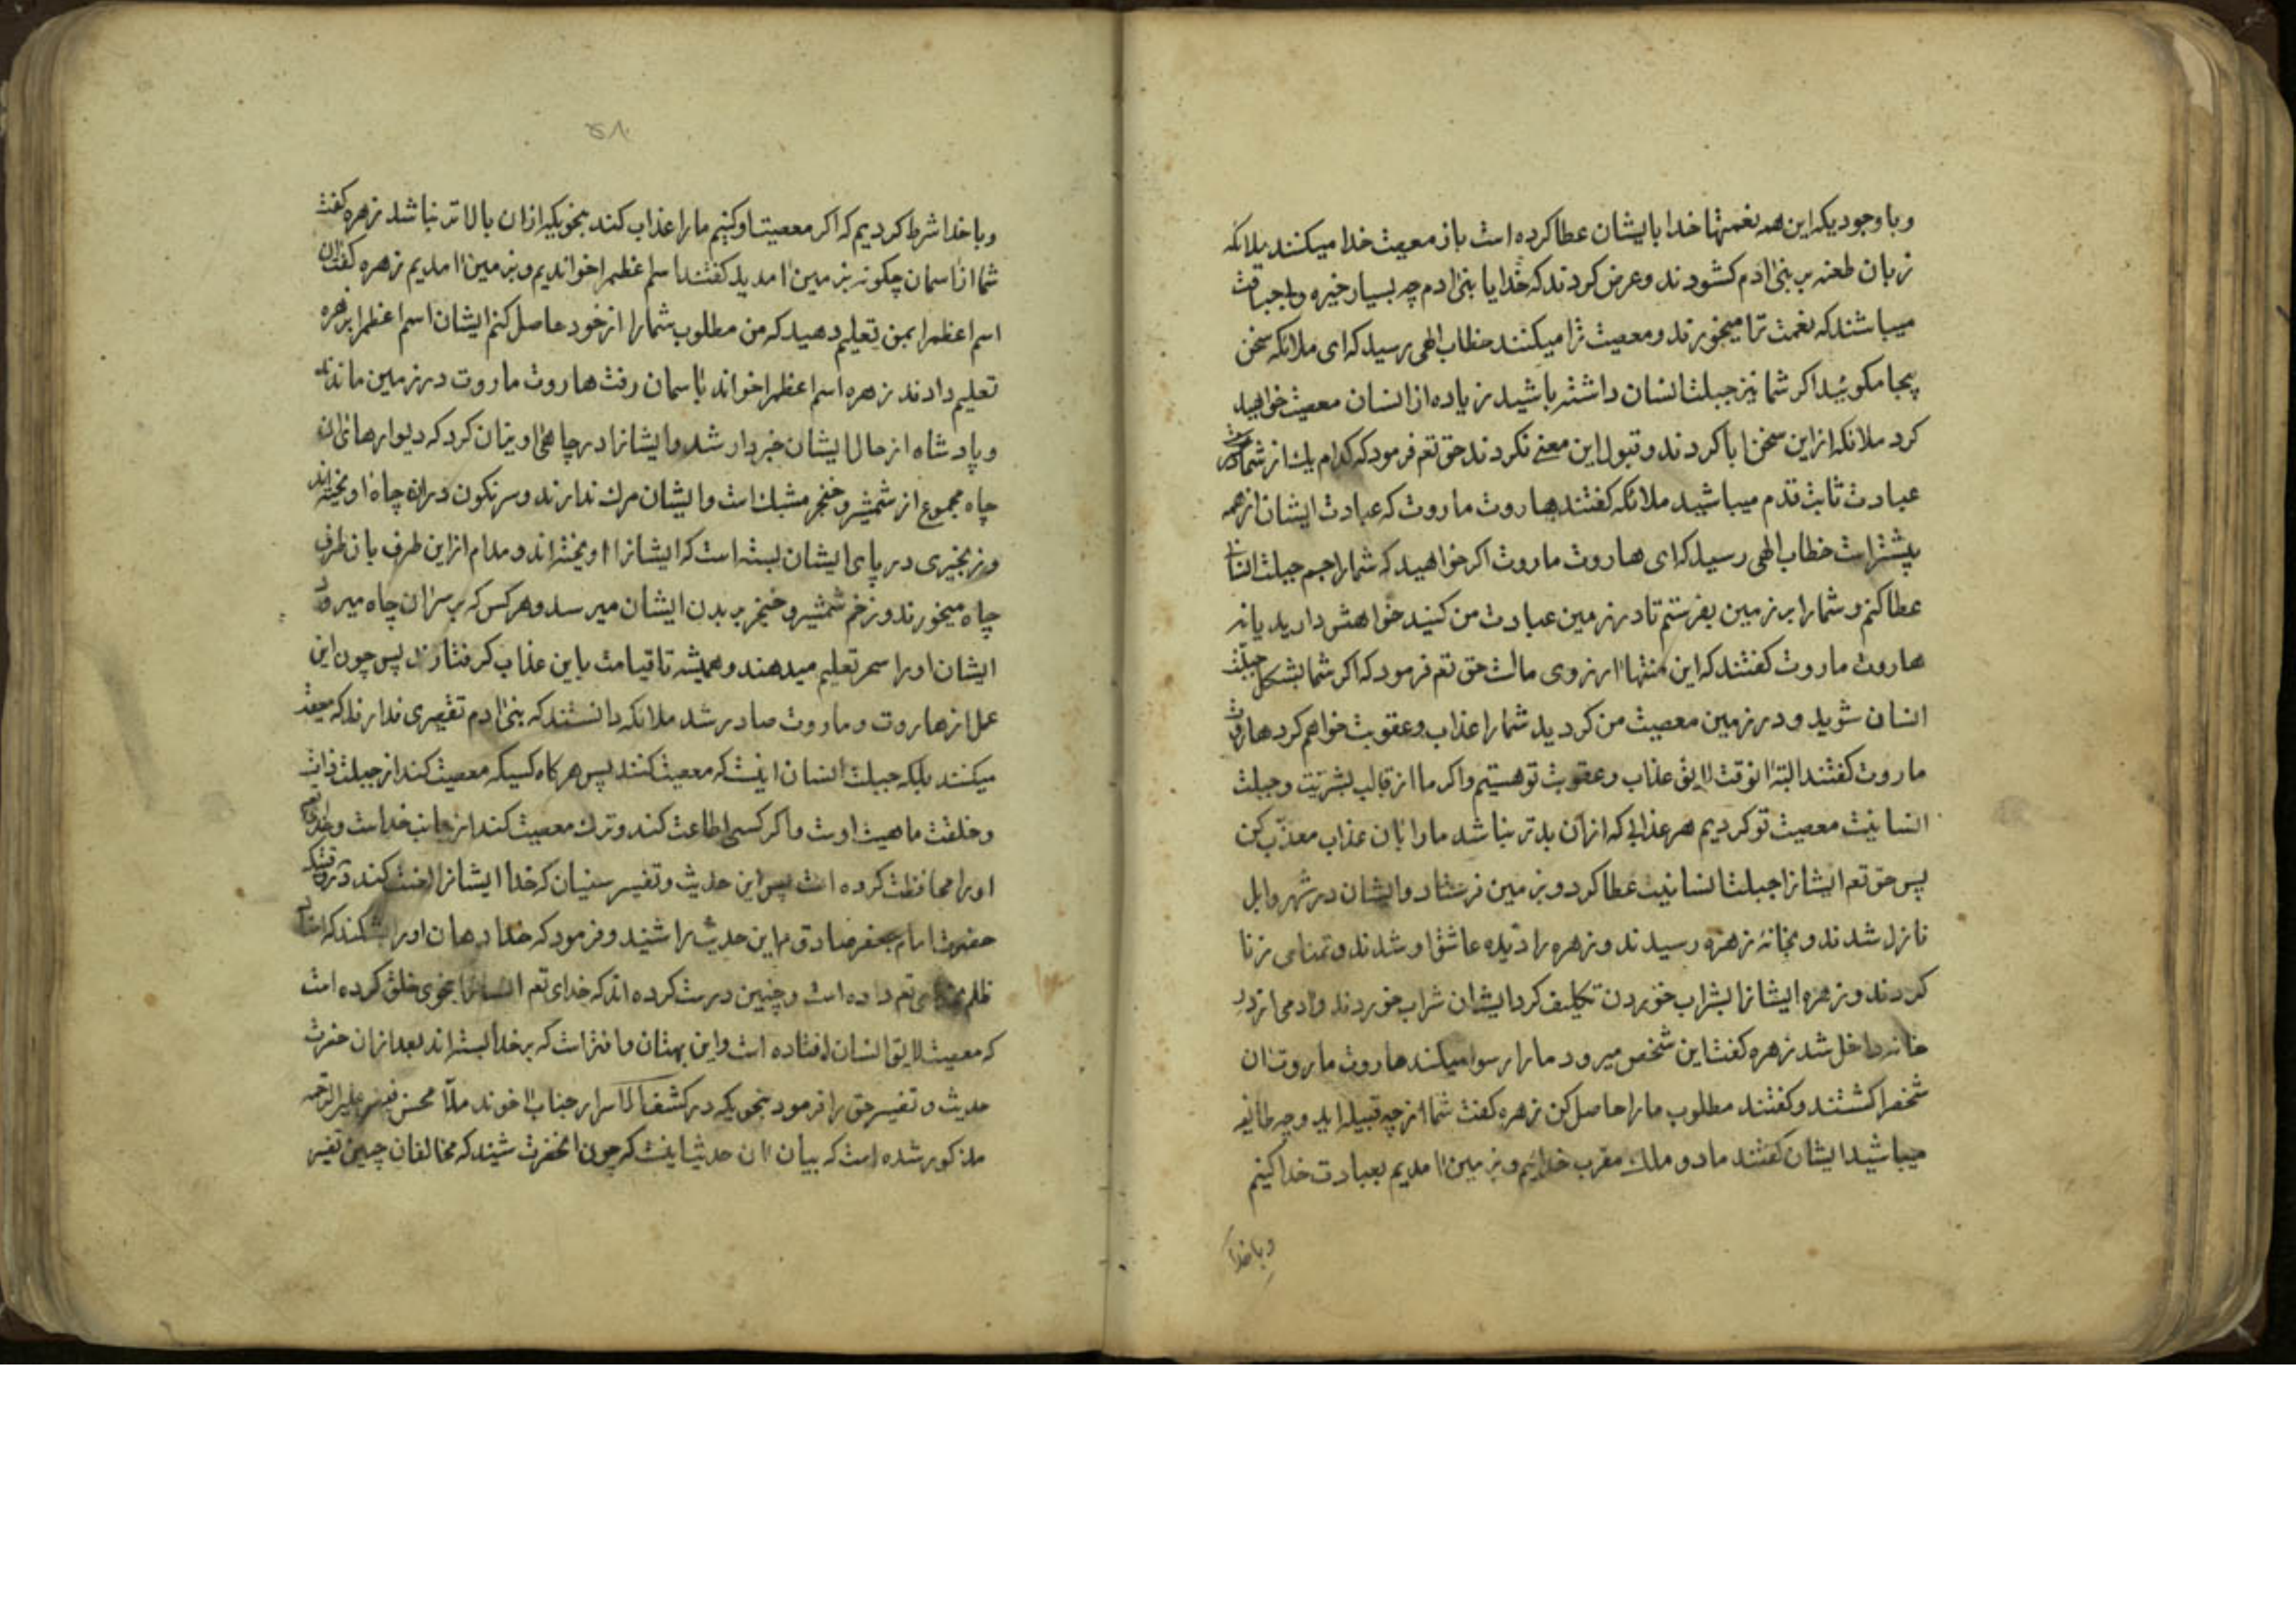 وباوجودیکه این همه نعمتها خدا بایشان عطا کرده است باز معصیت خدا میکنند ملائکه
زبان طعنه بر بنی ادم کشودند و عرض کردند که خدایا بنی ادم چه بسیار خیره
میباشند که نعمت ترا میخورند و معصیت ترا میکنند خطاب الهی رسید که ای ملائکه سخن
بیجا مکوئید اکر شما نیز جبلت انسان داشته باشید زیاده از انسان معصیت خواهید
کرد ملائکه از این سخن ابا کردند و قبول این معنی نکردند حق تعم فرمود که کدام یک از شما در
عبادت ثابت قدم میباشید ملائکه کفتند هاروت ماروت که عبادت ایشان از همه
بیشتر است خطاب الهی رسید که ای هاروت ماروت اکر خواهید که شما را جبلت انسان
عطا کنم و شما را بر زمین بفرستم تا در زمین عبادت من کنید خواهش دارید یا نه
هاروت ماروت کفتند که این منتها ارزوی ماست حق تعم فرمود که اکر شما بشکل جبلت
انسان شوید و در زمین معصیت من کردید شما را عذاب و عقوبت خواهم کرد هاروت
ماروت کفتند البته انوقت لایق عذاب و عقوبت تو هستیم و اکر ما از قالب بشریت و جبلت
انسانیت معصیت تو کردیم هر عذابی که ازان بدتر نباشد ما را بان عذاب معذب کن
پس حق تعم ایشانرا جبلت انسانیت عطا کرد و بزمین فرستاد و ایشان در شهر وابل
نازل شدند و بخانهٔ زهره رسیدند و زهره را دیده عاشق او شدند و تمنای زنا
کردند و زهره ایشانرا بشراب خوردن تکلیف کرد ایشان شراب خوردند و ادمی از در
خانه داخل شد زهره کفت این شخص میرود ما را رسوا میکند هاروت ماروت ان
شخصرا کشتند و کفتند مطلوب ما را حاصل کن زهره کفت شما از چه قبیله اید و چه طایفه
میباشید ایشان کفتند ما دو ملک مقرب خدائیم و بزمین امدیم بعبادت خدا کنیم
وباخدا
۵۸
وباخدا شرط کردیم که اکر معصیت او کنیم ما را عذاب کند بنحویکه ازان بالاتر نباشد زهره کفت
شما از اسمان چکونه بزمین امدید کفتند اسم اعظمرا خواندیم و بزمین امدیم زهره کفت ان
اسم اعظمرا بمن تعلیم دهید که من مطلوب شمارا از خود حاصل کنم ایشان اسم اعظمرا بزهره
تعلیم دادند زهره اسم اعظمرا خواند باسمان رفت هاروت ماروت در زمین ماندند
و پادشاه از حال ایشان خبردار شد و ایشانرا در چاهی اویزان کرد که دیوارهای ان
چاه مجموع از شمشیر و خنجر مشبک است و ایشان مرک ندارند و سرنکون دران چاه اویخته اند
و زنجیری در پای ایشان بسته است که ایشانرا اویخته اند و مدام از این طرف بان طرف
چاه میخورند و زخم شمشیر و خنجر بر بدن ایشان میرسد و هر کس که بر سر ان چاه میرود
ایشان اورا سحر تعلیم میدهند و همیشه تا قیامت باین عذاب کرفتارند پس چون این
عمل از هاروت و ماروت صادر شد ملائکه دانستند که بنی ادم تقصیری ندارند که معصیت
میکنند بلکه جبلت انسان اینست که معصیت کنند پس هرکاه کسیکه معصیت کند از جبلت ذات
و خلقت ماهیت اوست و اکر کسی اطاعت کند و ترک معصیت کند از جانب خداست و خدای
اورا محافظت کرده است پس این حدیث و تفسیر سنیان که خدا ایشانرا لعنت کند وقتیکه
حضرت امام جعفر صادق م این حدیث را شنید و فرمود که خدا دهان اورا بشکند که
ظلم بخدای تعم داده است و چنین درست کرده اند که خدای تعم انسانرا بنحوی خلق کرده است
که معصیت لایق انسان افتاده است و این بهتان و افتراست که بر خدا بسته اند بعد ازان حضرت
حدیث و تفسیر حق را فرمود بنحویکه در کشف الاسرار جناب اخوند ملا محسن فیض علیه الرحمه
مذکور شده است که بیان ان حدیث اینست که چون انحضرت شنید که مخالفان چنین تفسیر